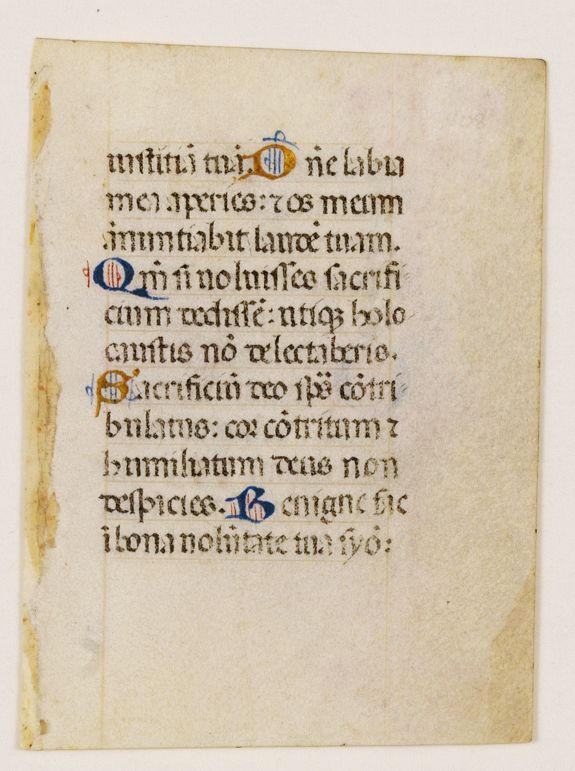 iustitiā tuā. Dn̄e labia
mea aperies: ⁊ os meum
ānuntiabit laudē tuam.
Qm̄ si uoluisses sacrifi-
cium dedissē: utiqꝫ holo-
caustis nō delectaberis.
Sacrificiū deo sp̄s cōtri-
bulatus: cor cōtritum ⁊
humiliatum deus non
despicies. Benigne fac
ī bona uolūtate tua syō: